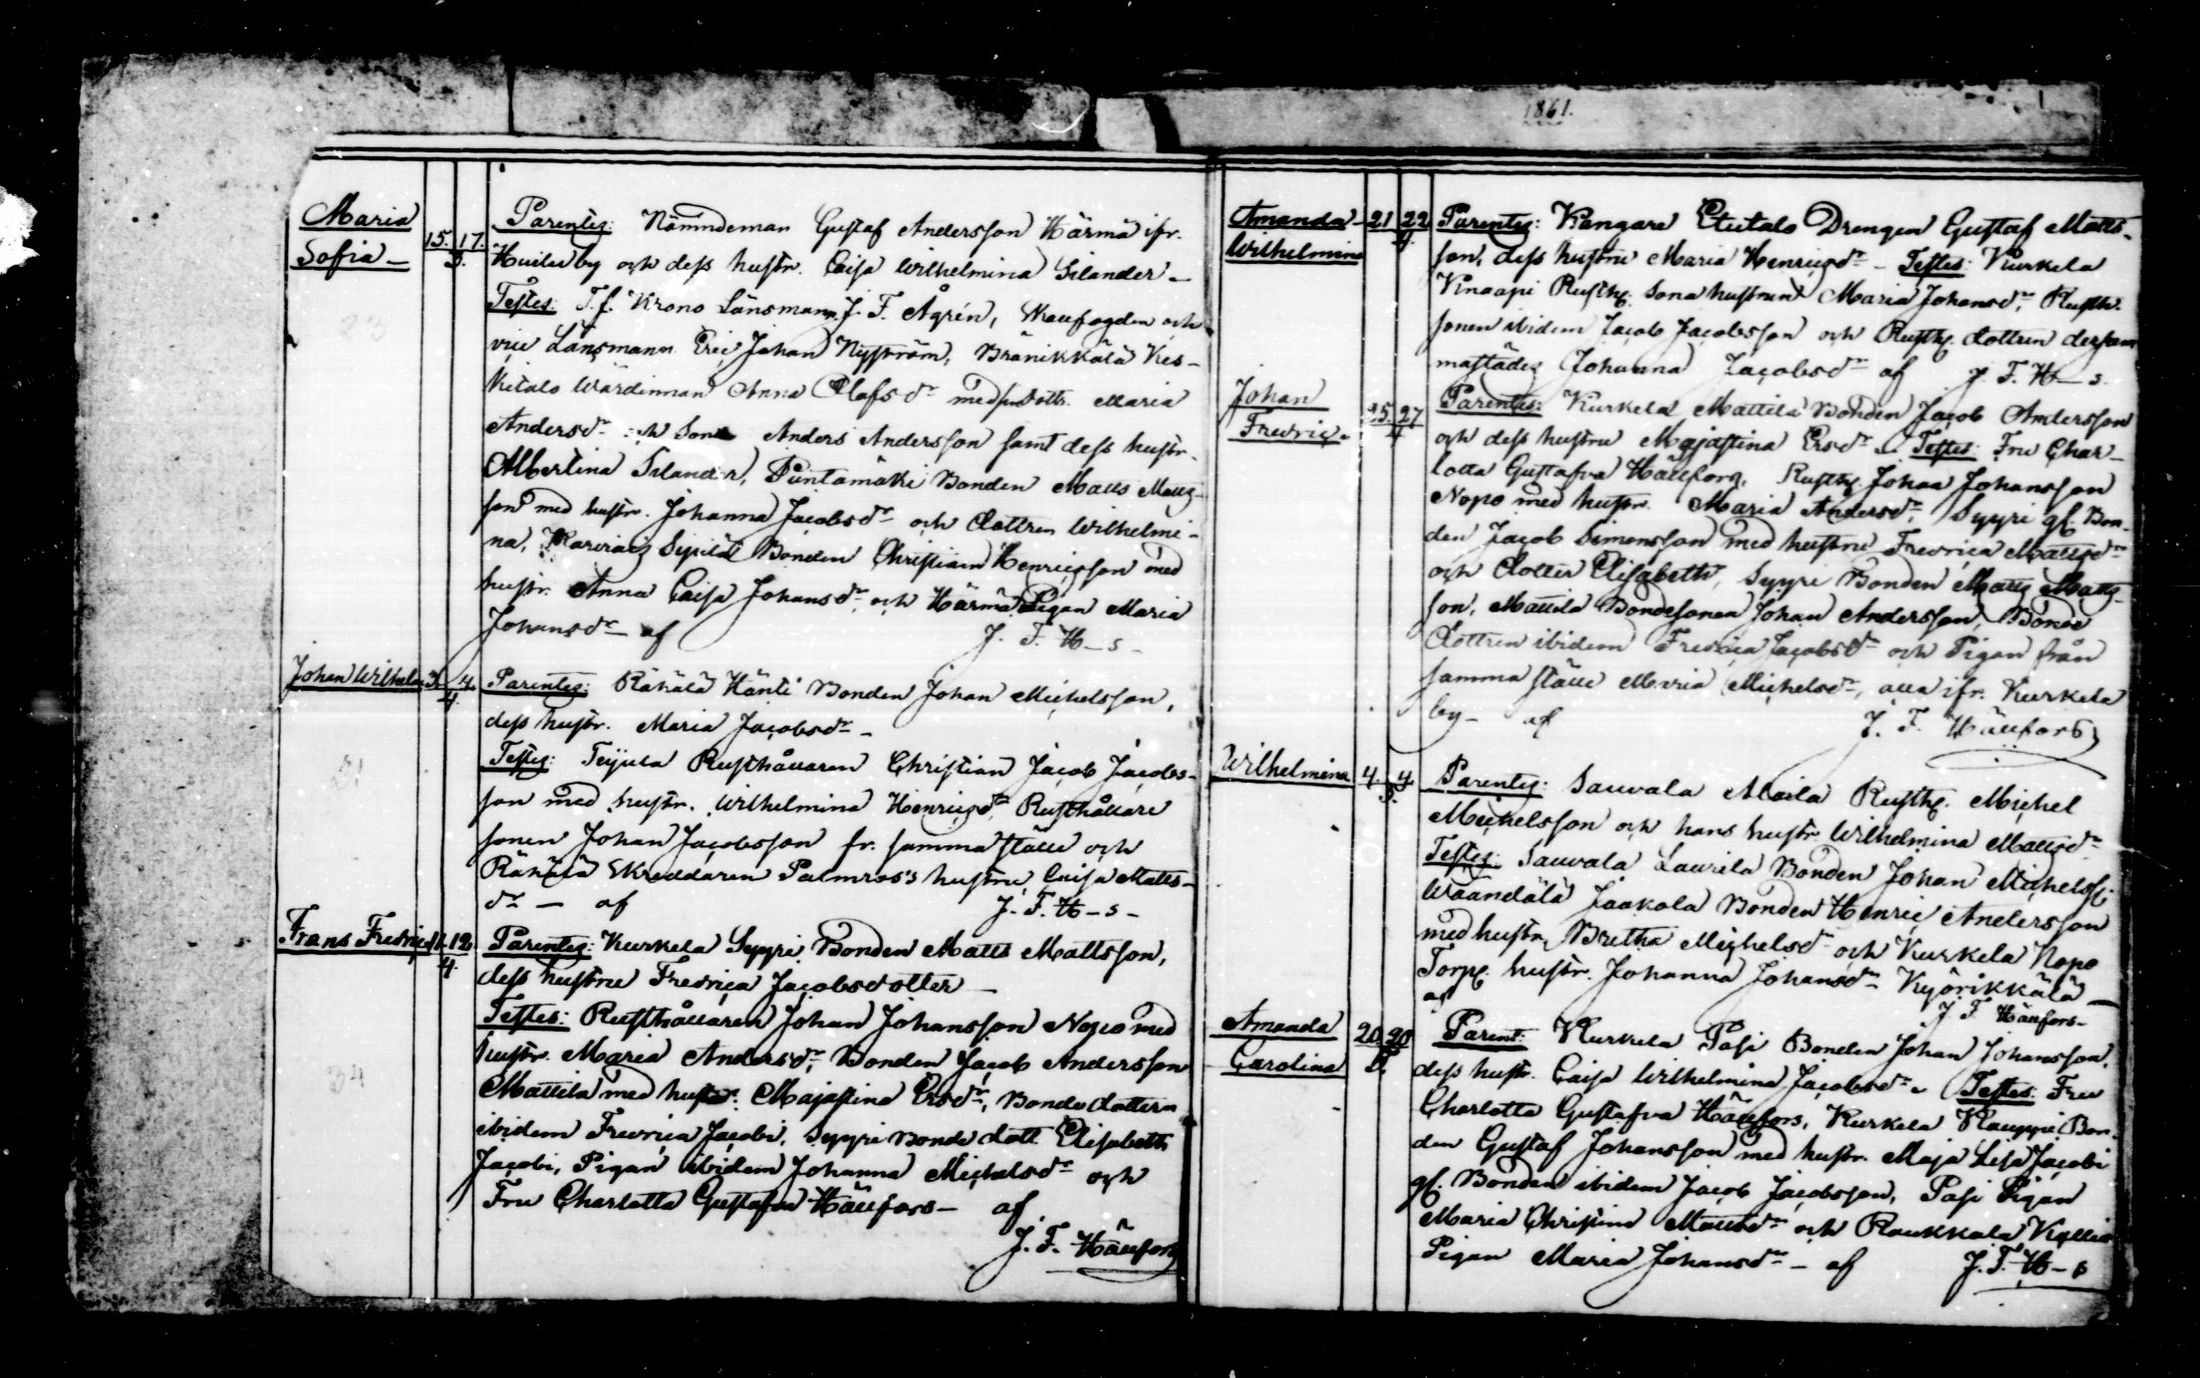 1861.
Maria
Sofia —
15. 17.
3.
Parentes: Nämndeman Gustaf Andersson Härmä ifr.
by och dess hustr. Caisa Wilhelmina Silander —
Testes: T.f. Krono Länsmann J. F. Ågrén, och
vice Länsmann Eric Johan Nyström, Bränikkälä Kes-
kitalo Wärdinnan Anna Olofsdr med dottr. Maria
Andersdr och Son Anders Andersson samt dess hustr.
Albertina Silander, Puntamäki Bonden Matts Matts-
son med hustr. Johanna Jacobsdr och dottren Wilhelmi-
na, Sipilä Bonden Christian Henricsson med
hustr. Anna Caisa Johansdr och Härmä Pigan Maria
Johansdr — af J. F. H—s —
Johan Wilhelm 3. 4.
4.
Parentes: Räkälä Hänti Bonden Johan Michelsson,
dess hustr. Maria Jacobsdr —
Testes: Rusthållaren Christian Jacob Jacobs-
son med hustr. Wilhelmina Henricsdr Rusthållare
sonen Johan Jacobsson fr. samma ställe och
Räkälä Skreddaren Palmros's hustru Caisa Matts-
dr — af J. F. H—s —
31
Frans Fredric 11. 12
4.
Parentes: Kurkela Syyri Bonden Matts Mattsson,
dess hustru Fredrica Jacobsdotter —
Testes: Rusthållaren Johan Johansson Nopo med
hustr. Maria Andersdr, Bonden Jacob Andersson
Mattila med hustr. Majastina Ersdr, Bonde dottern
ibidem Fredrica Jacobi, Syyri Bonde dott. Elisabeth
Jacobi, Pigan ibidem Johanna Michelsdr och
Fru Charlotta Gustafva Hällfors — af
J. F. Hällfors
34
Amanda
Wilhelmina
21 22
4.
Parentes: Kangare Drengen Gustaf Matts-
son, dess hustru Maria Henricsdr — Testes: Kurkela
Knaapi Rusth. Sona hustrun Maria Johansdr, Rusth.
sonen ibidem Jacob Jacobsson och Rusth. dottern dersam
mastädes Johanna Jacobsdr af J. F. H—s.
Johan
Fredric
25. 27
4
Parentes: Kurkela Mattila Bonden Jacob Andersson
och dess hustru Majastina Ersdr — Testes: Fru Char-
lotta Gustafva Hällfors, Rusth. Johan Johansson
Nopo med hustr. Maria Andersdr, Syyri gf. Bon-
den Jacob Simonsson med hustru Fredrica Mattsdr
och dotter Elisabeth, Syyri Bonden Matts Matts-
son, Mattila Bondesonen Johan Andersson, Bonde
dottren ibidem Fredrica Jacobsdr och Pigan från
samma ställe Maria Michelsdr, alla ifr. Kurkela
by — af J. F. Hällfors
Wilhelmina 4. 4
5.
Parentes: Sauvala Alaila Rusth. Michel
Michelsson och hans hustr. Wilhelmina Mattsdr
Testes: Sauvala Laurila Bonden Johan Michelss.
Waandälä Jaakola Bonden Henric Andersson
med hustr. Bretha Michelsdr och Kurkela Nopo
Torp. hustr. Johanna Johansdr Kyörikkälä —
af J. F. Hällfors —
Amanda
Carolina
20. 20
5.
Parent: Kurkela Pasi Bonden Johan Johansson,
dess hustr. Caisa Wilhelmina Jacobsdr. Testes: Fru
Charlotta Gustafva Hällfors, Kurkela Kauppi Bon-
den Gustaf Johansson med hustr. Maja Lisa Jacobi
gf. Bonden ibidem Jacob Jacobsson, Pasi Pigan
Maria Christina Mattsdr och Raukkala
Pigan Maria Johansdr — af J. F. H—s